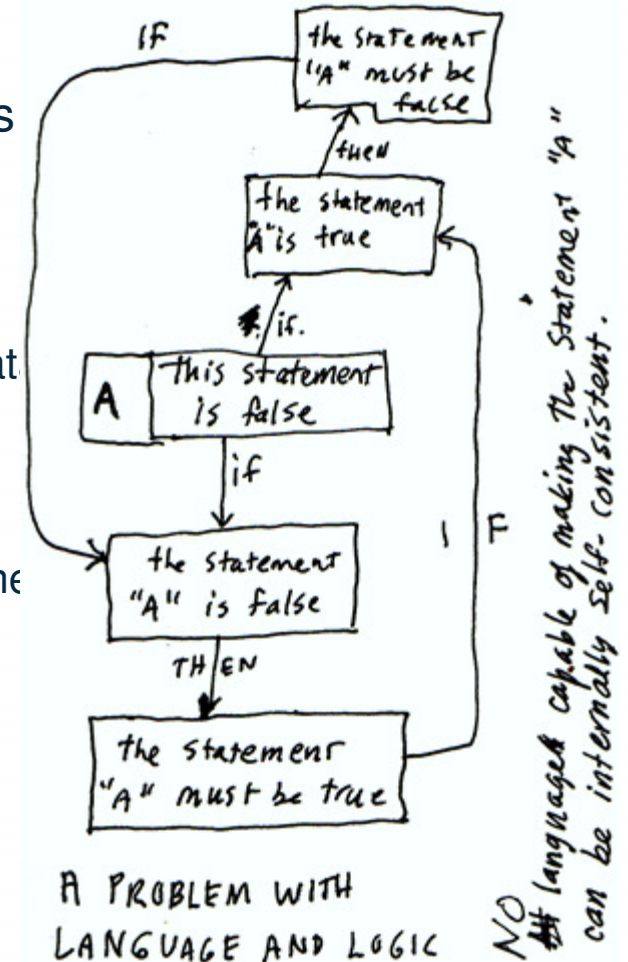 IF
the statement
"A" must be
false
then
the statement
"A" is true
if.
A
this statement
is false
if
the statement
"A" is false
THEN
the statement
"A" must be true
I F
A PROBLEM WITH
LANGUAGE AND LOGIC
NO languages capable of making the statement "A"
can be internally self-consistent.
s
at
ne